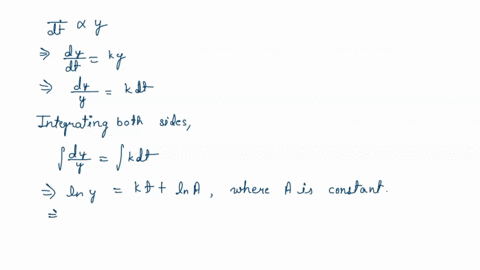 dt ∝ y
⇒ dy/dt = ky
⇒ dy/y = kdt
Integrating both sides,
∫dy/y = ∫kdt
⇒ ln y = kt + ln A, where A is constant.
⇒